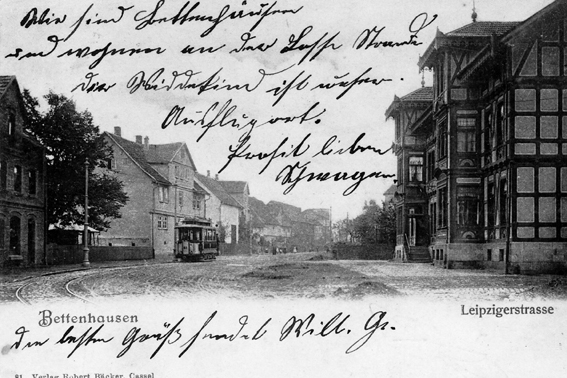 Wir sind Bettenhäusen
und wohnen an der Losse Strand
der Widdekind ist unser
Ausflugsort.
Prosit lieber
Schwager.
Bettenhausen
Leipzigerstrasse
den besten Gruß sendet Will. Gr.
81 Verlag Robert Bäcker, Cassel